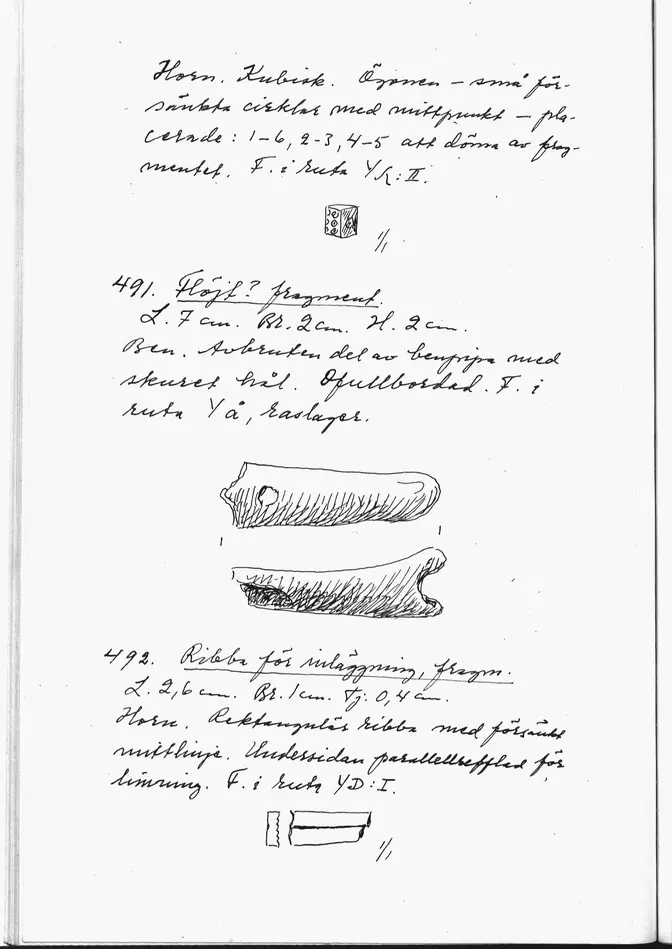 Horn. Kubisk. Ögonen – små för-
sänkta cirklar med mittpunkt – pla-
cerade: 1–6, 2–3, 4–5 att döma av frag-
mentet. F. i ruta Y :II.
1/1
491. Flöjt? fragment.
L. 7 cm. Br. 2 cm. H. 2 cm.
Ben. Avbruten del av benpipa med
skuret hål. Ofullbordad. F. i
ruta Yå, raslager.
492. Ribba för inläggning, fragm.
L. 2,6 cm. Br. 1 cm. Tj: 0,4 cm.
Horn. Rektangulär ribba med försänkt
mittlinje. Undersidan parallellrefflad för
limning. F. i ruta YD:I.
1/1